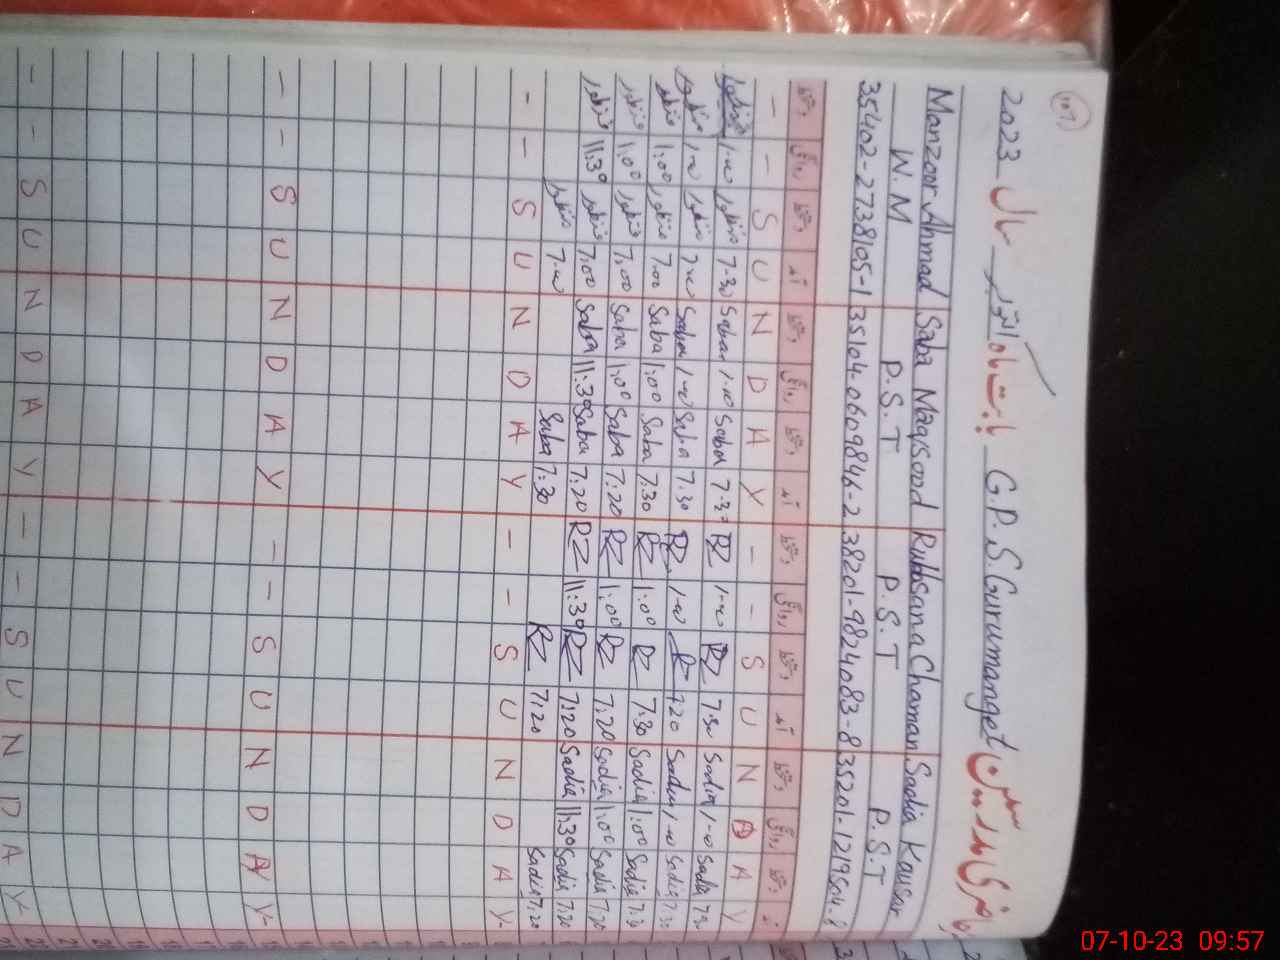 107
حاضری مدرسین G.P.S. Gurumanget بابت ماہ اکتوبر سال 2023
Manzoor Ahmad Saba Maqsood Rukhsana Chaman Sadia Kausar
W.M P.S.T P.S.T P.S.T
35402-2738105-1 35104-0609846-2 38201-9824083-8 35201-1219504-8 3
دستخط روانگی دستخط آمد دستخط روانگی دستخط آمد دستخط روانگی دستخط آمد دستخط روانگی دستخط آمد
— — S U N D A Y — — S U N D A Y
منظور 1-00 منظور 7-30 Saba 1-00 Saba 7-30 RZ 1-00 RZ 7:30 Sadia 1-00 Sadia 7:30
منظور 1-00 منظور 7-00 Saba 1-00 Saba 7:30 RZ 1-00 RZ 7:20 Sadia 1-00 Sadia 7:30
منظور 1:00 منظور 7:00 Saba 1:00 Saba 7:30 RZ 1:00 RZ 7:30 Sadia 1:00 Sadia 7:30
منظور 1:00 منظور 7:00 Saba 1:00 Saba 7:20 RZ 1:00 RZ 7:20 Sadia 1:00 Sadia 7:20
منظور 11:30 منظور 7:00 Saba 11:30 Saba 7:20 RZ 11:30 RZ 7:20 Sadia 11:30 Sadia 7:20
منظور 7-00 Saba 7:30 RZ 7:20 Sadia 7:20
— — S U N D A Y — — S U N D A Y
— — S U N D A Y — — S U N D A Y
— — S U N D A Y — — S U N D A Y
07-10-23 09:57